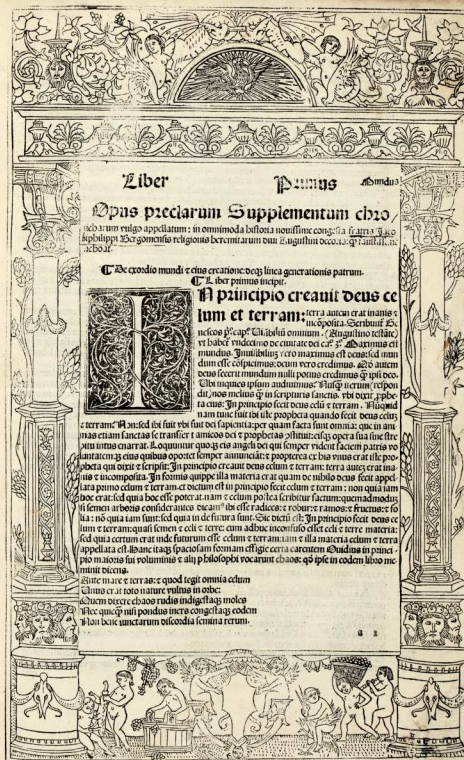 Liber Primus Mundus
Opus preclarum Supplementum chro/
nicharum vulgo appellatum: in omnimoda historia novissime congesta fratris Jaco
biphilippi Bergomensis religionis heremitarum divi Augustini decoris: qȝ faustissime
inchoat.
¶ De exordio mundi ⁊ eius creatione: deqȝ linea generationis patrum.
¶ Liber primus incipit.
IN principio creavit deus ce
lum et terram: terra autem erat inanis ⁊
incōposita. Scribunt̄ Ge
neseos p̄º capº Uisibiliū omnium. (Augustino testāte)
vt habet̄ vndecimo de civitate dei caº. 3º. Maximus est
mundus. Invisibiliuȝ vero maximus est deus: sed mun
dum esse cōspicimus: deum vero credimus. Qȝ autem
deus fecerit mundum nulli potius credimus qȝ ipsi deo.
Ubi inquies ipsum audivimus? Nusqȝ iterum (respon
dit) nos melius qȝ in scripturis sanctis. vbi dixit ,pphe
ta eius: In principio fecit deus celū ⁊ terram. Nunquid
nam tunc fuit ibi iste propheta quando fecit deus celuȝ
⁊ terram? Non: sed ibi fuit vbi fuit dei sapientia: per quam facta sunt omnia: que in ani
mas etiam sanctas se transfert ⁊ amicos dei ⁊ prophetas ɔstituit: eisqȝ opera sua sine stre
pitu intus enarrat. Loquuntur quoqȝ eis angeli dei qui semper vident faciem patris vo
luntatemqȝ eius quibus oportet semper annunciāt: ⁊ propterea ex his vnus erat iste pro
pheta qui dixit ⁊ scripsit: In principio creavit deus celum ⁊ terram: terra auteȝ erat ina
nis ⁊ incomposita. In formis quippe illa materia erat quam de nihilo deus fecit appel
lata primo celum ⁊ terram. et dictum est in principio fecit celum ⁊ terram: non quia iam
hoc erat: sed quia hoc esse poterat. nam ⁊ celum postea scribitur factum: quemadmoduȝ
si semen arboris considerantes dicam⁹ ibi esse radices: ⁊ robur: ⁊ ramos: ⁊ fructus: ⁊ fo
lia: nō quia iam sunt: sed quia inde futura sunt. Sic dictū est: In principio fecit deus ce
lum ⁊ terram: quasi semen ⁊ celi ⁊ terre: cum adhuc inconfuso esset celi ⁊ terre materia:
sed quia certum erat inde futurum esse celum ⁊ terram: iam ⁊ illa materia celum ⁊ terra
appellata est. Hanc itaqȝ spaciosam formam effigie certa carentem Ovidius in princi
pio maioris sui voluminis ⁊ alij philosophi vocarunt chaos: qȝ ipse in eodem libro me
minit dicens.
Ante mare ⁊ terras: ⁊ quod tegit omnia celum
Unus erat toto nature vultus in orbe:
Quem dixere chaos rudis indigestaqȝ moles
Nec quicqȝ nisi pondus iners congestaqȝ eodem
Non bene iunctarum discordia semina rerum.
a 2